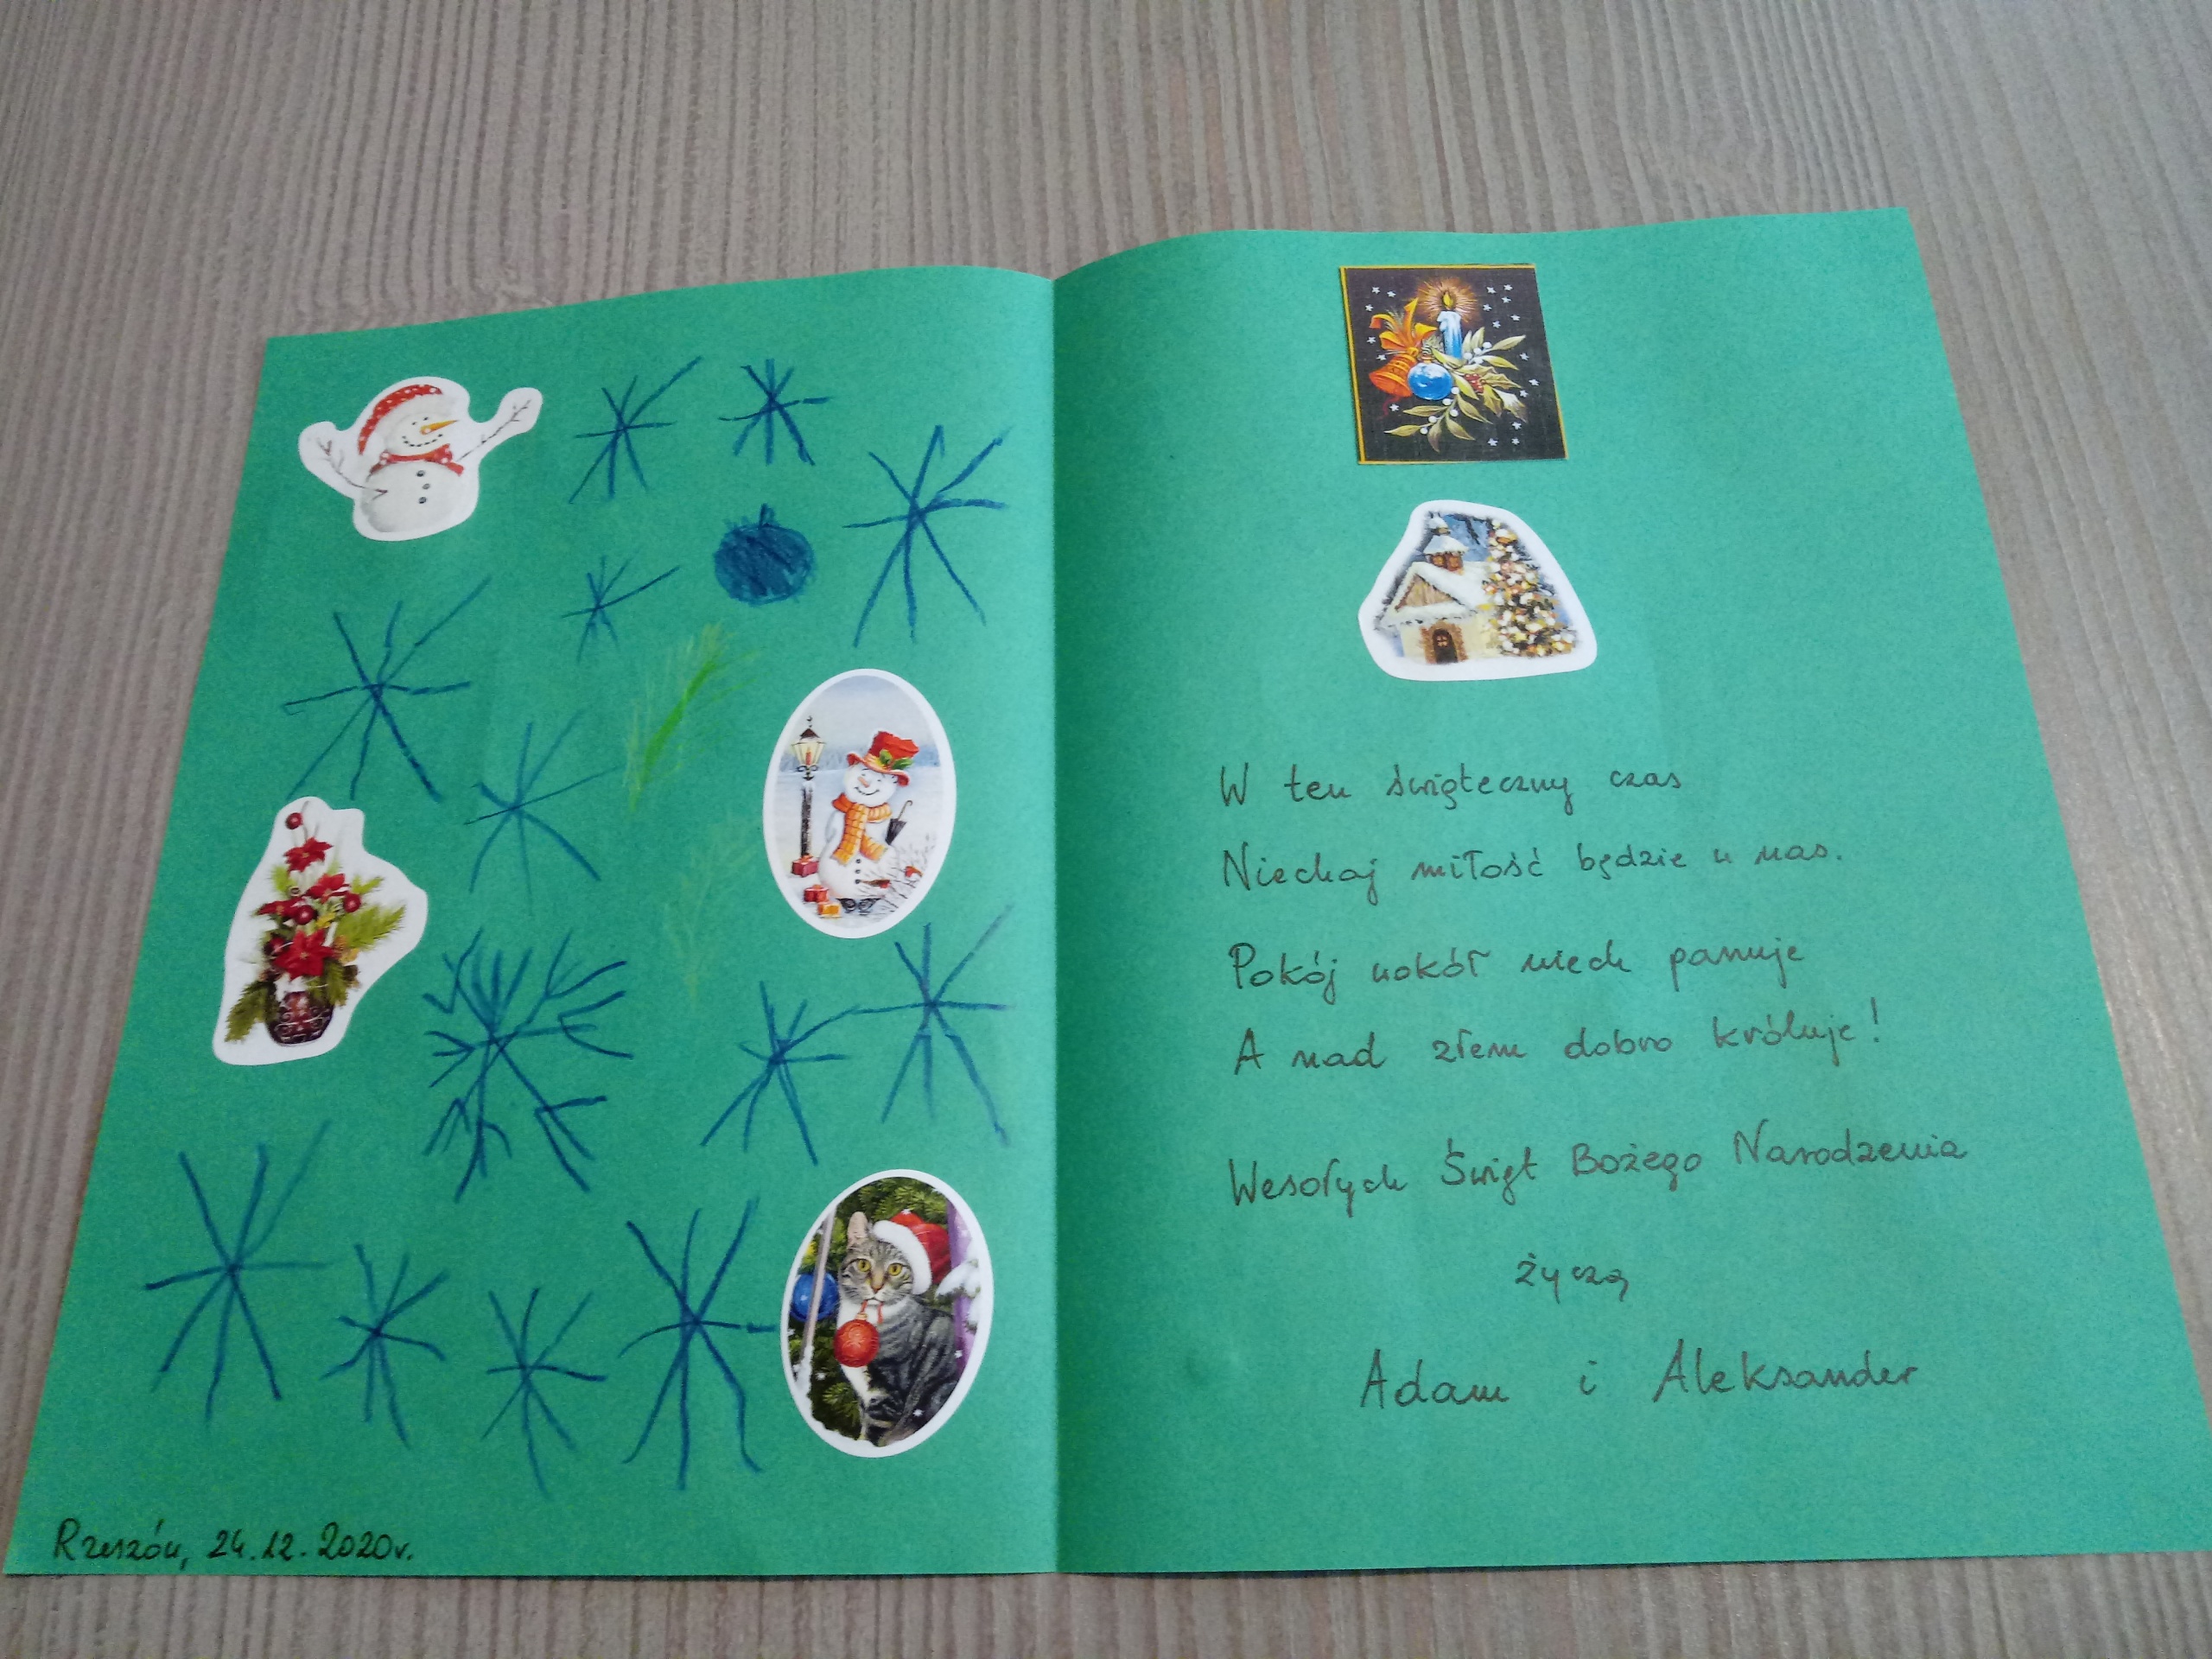 Rzeszów, 24.12.2020r.
W ten świąteczny czas
Niechaj miłość będzie w nas.
Pokój wokół niech panuje
A nad złem dobro króluje!
Wesołych Świąt Bożego Narodzenia
życzą
Adam i Aleksander